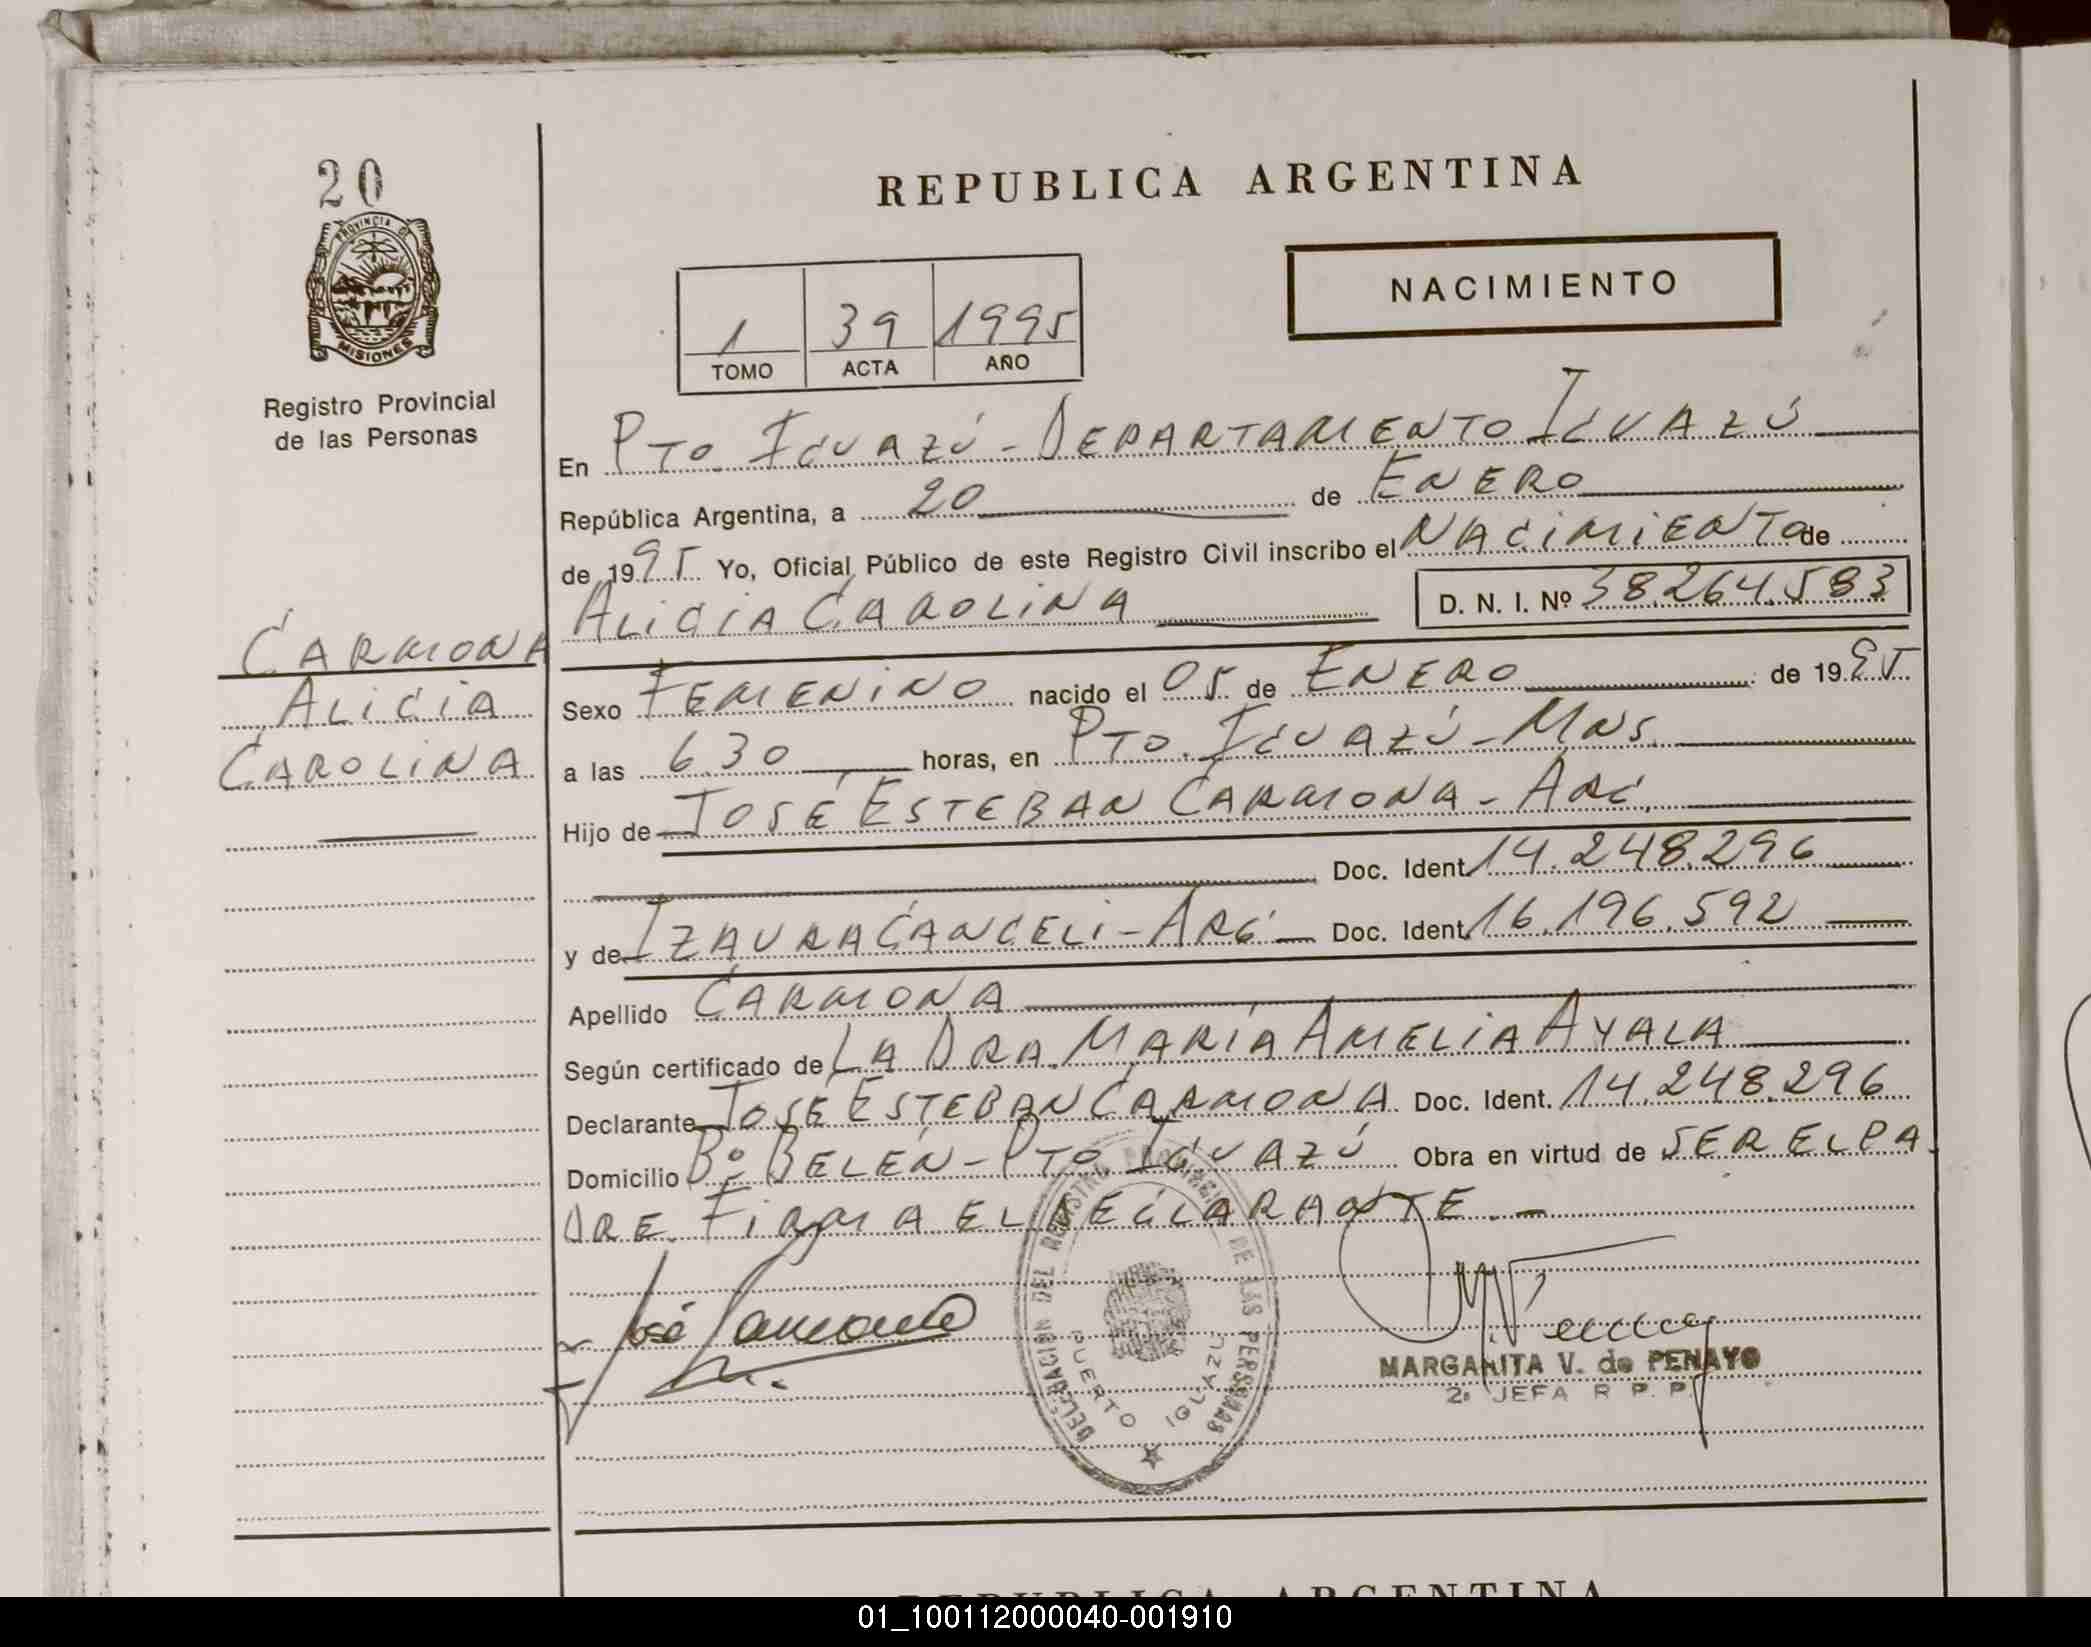 20
PROVINCIA DE
MISIONES
Registro Provincial
de las Personas
REPUBLICA ARGENTINA
NACIMIENTO
1 39 1995
TOMO ACTA AÑO
En PTO. IGUAZÚ - DEPARTAMENTO IGUAZÚ
República Argentina, a 20 de ENERO
de 1995 Yo, Oficial Público de este Registro Civil inscribo el NACIMIENTO de
ALICIA CAROLINA D. N. I. Nº 38.264.583
CARMONA
ALICIA
CAROLINA
Sexo FEMENINO nacido el 05 de ENERO de 1995
a las 6.30 horas, en PTO. IGUAZÚ - MNS.
Hijo de JOSÉ ESTEBAN CARMONA - ARG.
Doc. Ident. 14.248.296
y de IZAURA CANCELI - ARG Doc. Ident. 16.196.592
Apellido CARMONA
Según certificado de LA DRA. MARÍA AMELIA AYALA
Declarante JOSÉ ESTEBAN CARMONA Doc. Ident. 14.248.296
Domicilio Bº BELÉN - PTO. IGUAZÚ Obra en virtud de SER EL PA
DRE. FIRMA EL DECLARANTE. -
José Carmona
DELEGACION DEL REGISTRO PROVINCIAL DE LAS PERSONAS
PUERTO IGUAZU
MARGARITA V. de PENAYO
2ª JEFA R. P. P.
REPUBLICA ARGENTINA
01_100112000040-001910